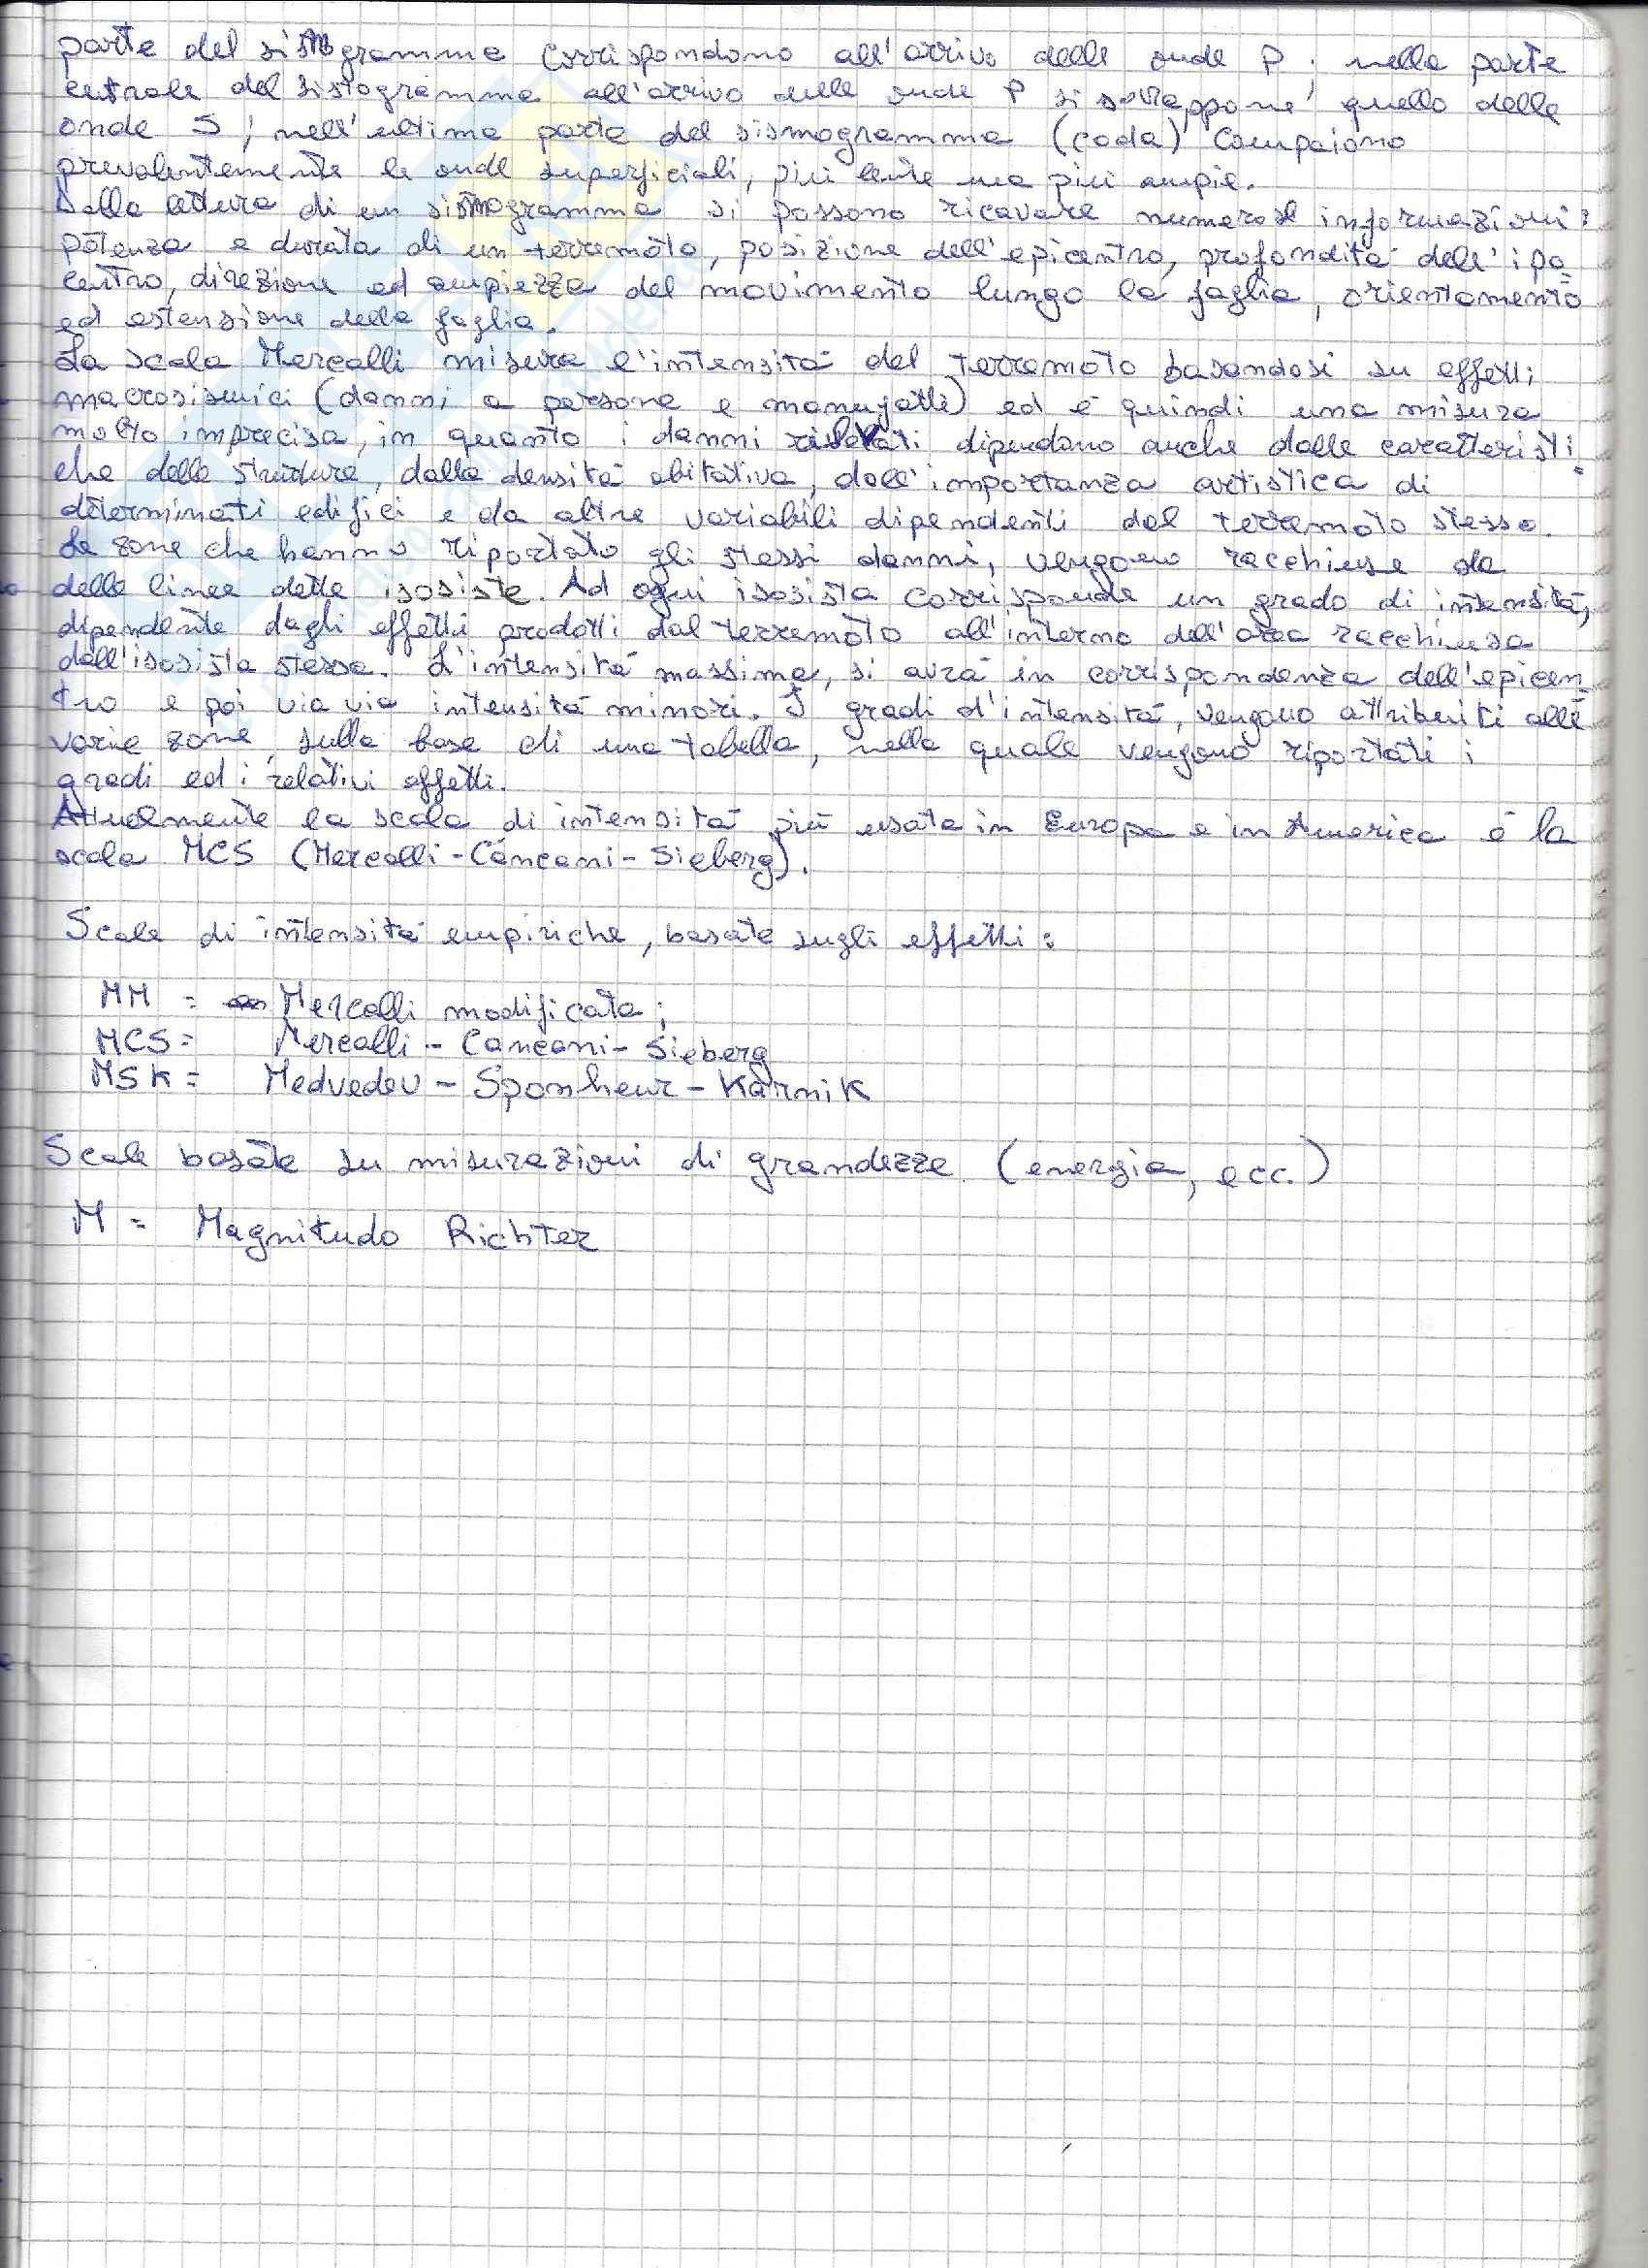 parte del sismogramma corrispondono all'arrivo delle onde P; nella parte
centrale del sistogramma all'arrivo delle onde P si sovrappone quello delle
onde S; nell'ultima parte del sismogramma (coda) compaiono
prevalentemente le onde superficiali, più lente ma più ampie.
Dalla lettura di un sismogramma si possono ricavare numerose informazioni:
potenza e durata di un terremoto, posizione dell'epicentro, profondità dell'ipo=
centro, direzione ed ampiezza del movimento lungo la faglia, orientamento
ed estensione della faglia.
La scala Mercalli misura l'intensità del terremoto basandosi su effetti
macrosismici (danni a persone e manufatti) ed è quindi una misura
molto imprecisa, in quanto i danni rilevati dipendono anche dalle caratteristi=
che delle strutture, dalla densità abitativa, dall'importanza artistica di
determinati edifici e da altre variabili dipendenti dal terremoto stesso.
Le zone che hanno riportato gli stessi danni, vengono racchiuse da
delle linee dette isosiste. Ad ogni isosista corrisponde un grado di intensità,
dipendente dagli effetti prodotti dal terremoto all'interno dell'area racchiusa
dall'isosista stessa. L'intensità massima, si avrà in corrispondenza dell'epicen=
tro e poi via via intensità minori. I gradi d'intensità, vengono attribuiti alle
varie zone, sulla base di una tabella, nella quale vengono riportati i
gradi ed i relativi effetti.
Attualmente la scala di intensità più usata in Europa e in America è la
scala MCS (Mercalli-Cancani-Sieberg).
Scale di intensità empiriche, basate sugli effetti:
MM = Mercalli modificata;
MCS= Mercalli-Cancani-Sieberg
MSK= Medvedev-Sponheur-Karnik
Scale basate su misurazioni di grandezze (energia, ecc.)
M = Magnitudo Richter